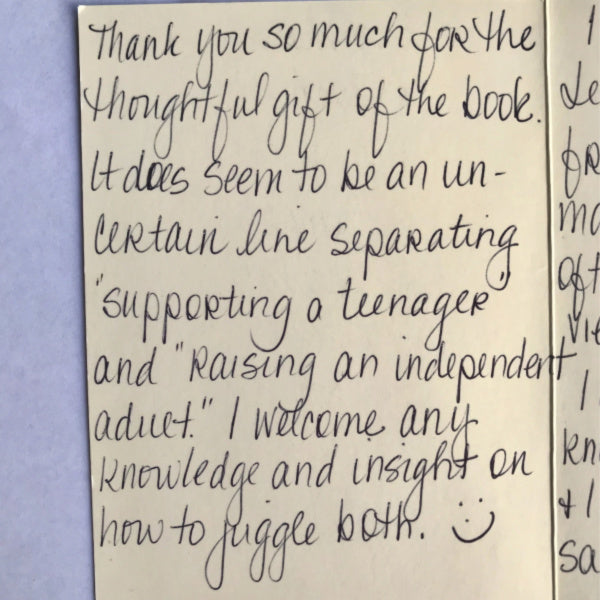 Thank you so much for the
thoughtful gift of the book.
It does seem to be an un-
certain line separating
"supporting a teenager"
and "raising an independent
adult." I welcome any
knowledge and insight on
how to juggle both. :)